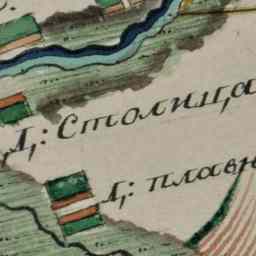 Д: Столица
Д: плавн